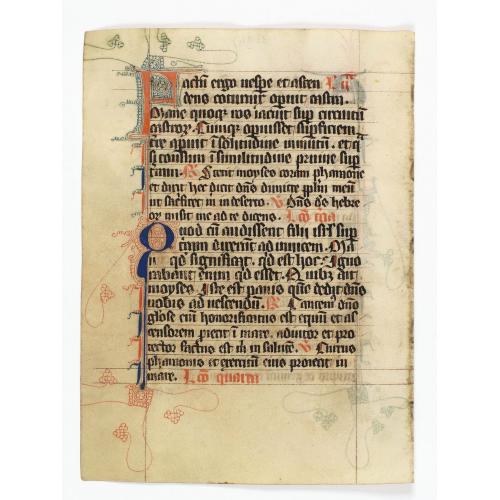 Factū ergo uespe et ascen L͞c ij
dens coturnix opuit castra.
Mane quoqꝫ ros iacuit sup circuitū
castroꝝ. Cumqꝫ opuisset supficiem
tre apuit ī solitudine minutū. et qͣ
si contusū ī similitudine pruine sup
tram. R͞ Stetit moyses coram pharaone
et dixit hec dicit dn̄s dimitte pplm̄ meū
ut sacficet m̄ in deserto. V Dn̄s ds̄ hebre
oꝝ misit me ad te dicens. L͞co t͞cia
Quod cū audissent filii isrl̄ sup
terram dixerunt ad inuicem. Ma
nu qd̄ significat. qd̄ est hoc. Igno
rabant enim qd̄ esset. Quibꝫ ait
moyses. Iste est panis quē dedit dn̄s
uobis ad uescendū. R͞ Cantem͛ dn̄o
gl̄ose enī honorificatus est equū et as
censorem piecit ī mare. adiutor et pro
tector factus est m̄ in salutē. V Currus
pharaonis et exercitū eius proiecit in
mare. L͞co quarta